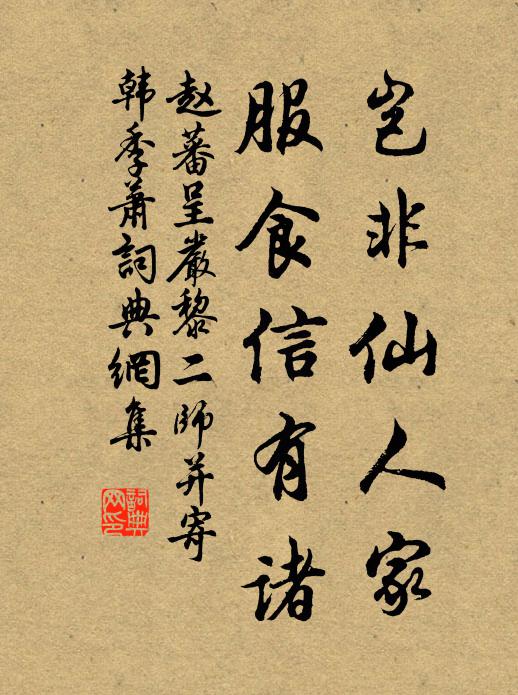 岂非仙人家
服食信有诸
赵蕃呈嚴黎二师并寄
韩季萧詞典網集
詞典网印